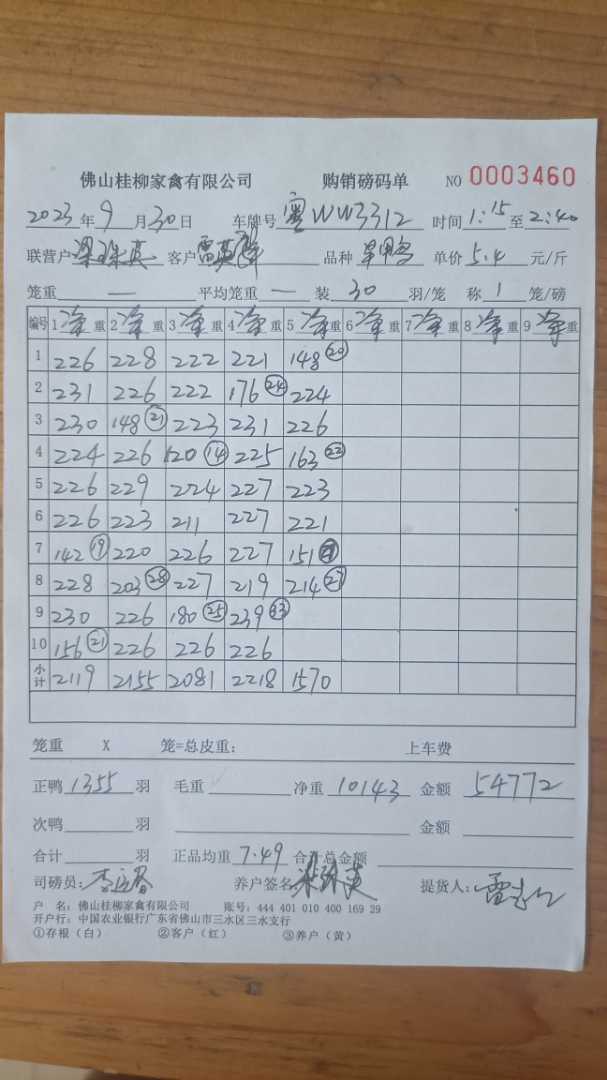 佛山桂柳家禽有限公司 购销磅码单 NO 0003460
2023年9月30日 车牌号 粤WW3312 时间1:15至2:40
联营户 客户 品种 单价5.4元/斤
笼重 — 平均笼重 — 装 30 羽/笼 称 1 笼/磅
编号 1净重 2净重 3净重 4净重 5净重 6净重 7净重 8净重 9净重
1 226 228 222 221 148⑳
2 231 226 222 176㉔ 224
3 230 148㉑ 223 231 226
4 224 226 120⑭ 225 163㉒
5 226 229 224 227 223
6 226 223 211 227 221
7 142⑲ 220 226 227 151
8 228 203㉘ 227 219 214㉗
9 230 226 180㉕ 239㉝
10 156㉑ 226 226 226
小计 2119 2155 2081 2218 1570
笼重 X 笼=总皮重: 上车费
正鸭1355羽 毛重 净重10143 金额54772
次鸭 羽 金额
合计 羽 正品均重7.49 合计总金额
司磅员: 养户签名: 提货人:
户 名: 佛山桂柳家禽有限公司 账号: 444 401 010 400 169 29
开户行: 中国农业银行广东省佛山市三水区三水支行
①存根(白) ②客户(红) ③养户(黄)